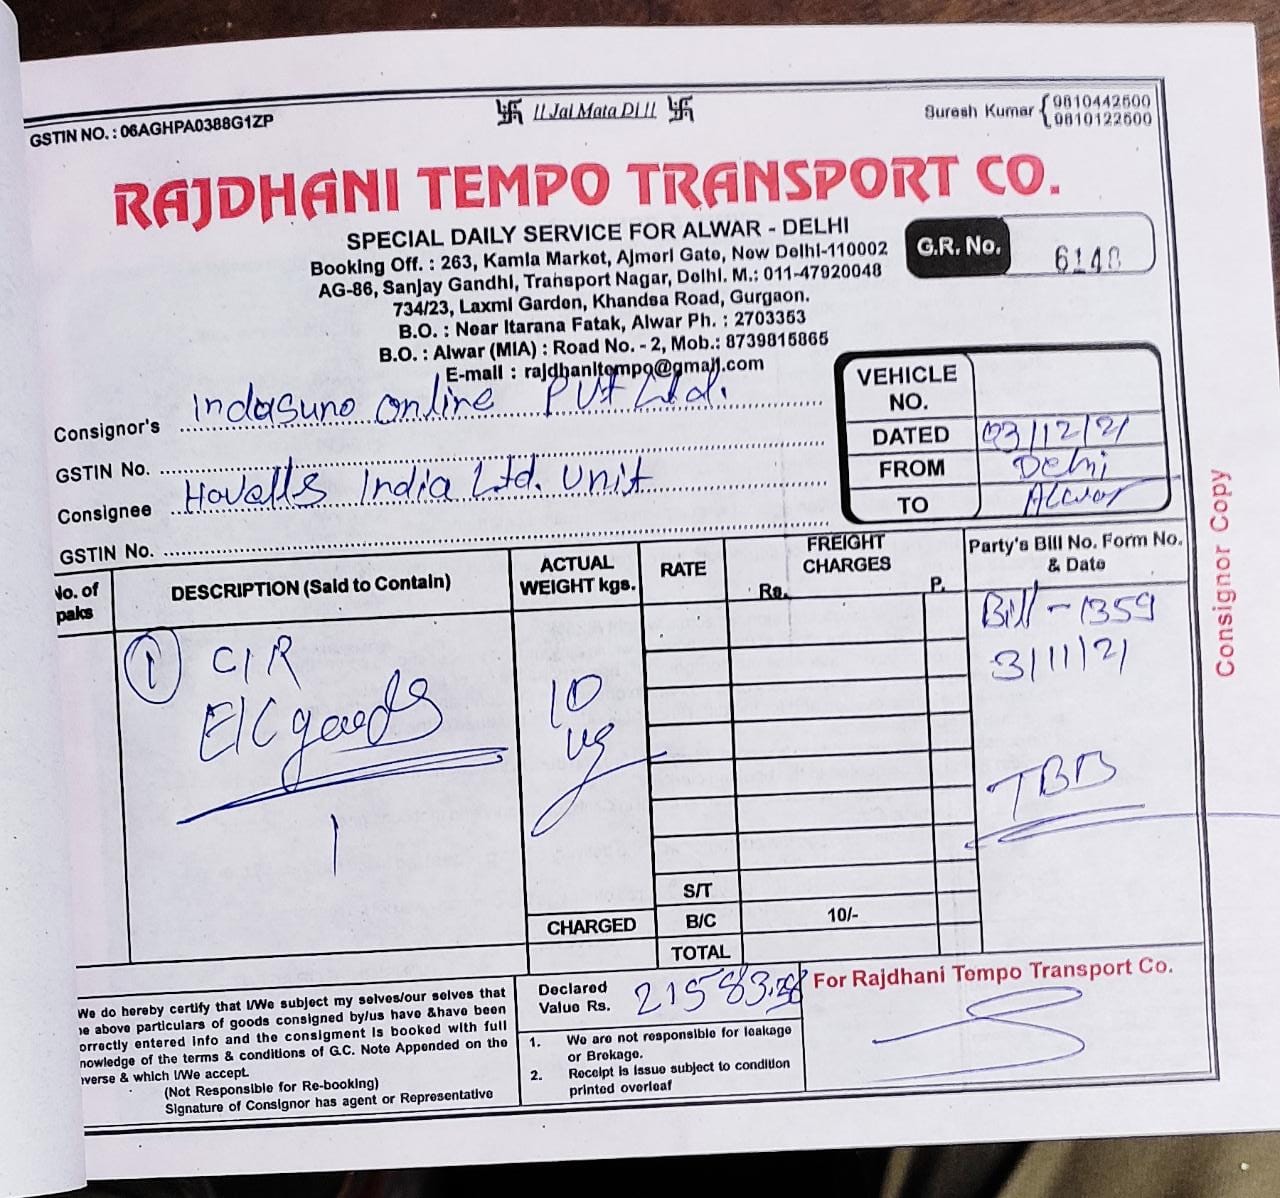 GSTIN NO. : 06AGHPA0388G1ZP
卐 !! Jai Mata Di !! 卐
Suresh Kumar { 9810442600
9810122600
RAJDHANI TEMPO TRANSPORT CO.
SPECIAL DAILY SERVICE FOR ALWAR - DELHI
Booking Off. : 263, Kamla Market, Ajmeri Gate, New Delhi-110002
AG-86, Sanjay Gandhi, Transport Nagar, Delhi. M.: 011-47920048
734/23, Laxmi Garden, Khandsa Road, Gurgaon.
B.O. : Near Itarana Fatak, Alwar Ph. : 2703353
B.O. : Alwar (MIA) : Road No. - 2, Mob.: 8739815865
E-mail : rajdhanitempo@gmail.com
G.R. No. 6148
Consignor's Indasuno online Pvt Ltd.
GSTIN No.
Consignee Havells India Ltd. Unit
GSTIN No.
VEHICLE NO.
DATED 03/12/21
FROM Delhi
TO Alwar
No. of paks
DESCRIPTION (Said to Contain)
ACTUAL WEIGHT kgs.
RATE
FREIGHT CHARGES
Rs. P.
Party's Bill No. Form No. & Date
1 C/R
E/C goods
1
10
Bill - 1359
3/11/21
TBB
S/T
CHARGED B/C 10/-
TOTAL
We do hereby certify that I/We subject my selves/our selves that
above particulars of goods consigned by/us have &have been
orrectly entered info and the consigment is booked with full
nowledge of the terms & conditions of G.C. Note Appended on the
verse & which I/We accept.
(Not Responsible for Re-booking)
Signature of Consignor has agent or Representative
Declared Value Rs. 21583.28
1. We are not responsible for leakage
or Brokage.
2. Receipt is issue subject to condition
printed overleaf
For Rajdhani Tempo Transport Co.
Consignor Copy